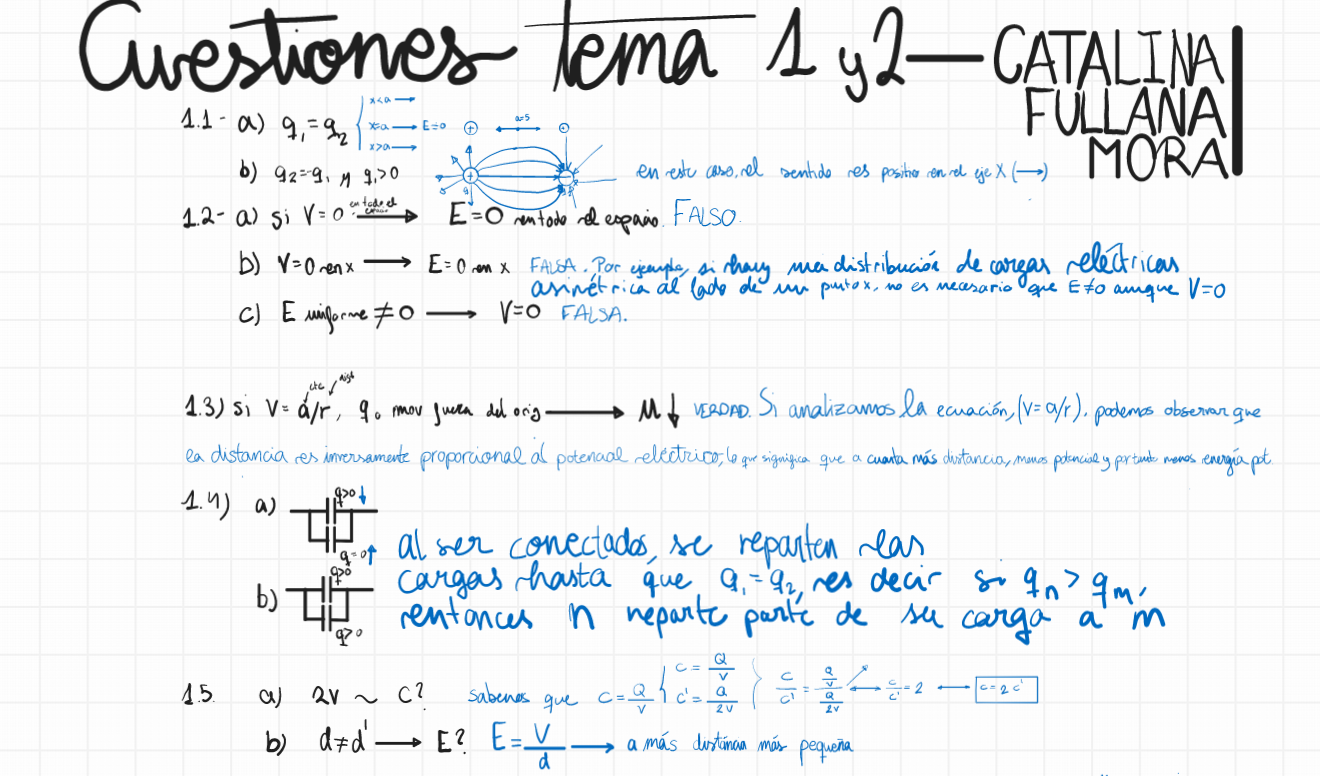 Cuestiones tema 1 y 2 — CATALINA FULLANA MORA
1.1- a) q₁ = q₂ { x<a → x=a → E=0 x>a →
a=5
b) q₂=-q₁ y q₁>0 en este caso, el sentido es positivo en el eje X (→)
1.2- a) si V=0 en todo el espacio → E=0 en todo el espacio. FALSO.
b) V=0 en x → E=0 en x FALSA. Por ejemplo, si hay una distribución de cargas eléctricas
asimétrica al lado de un punto x, no es necesario que E≠0 aunque V=0
c) E uniforme ≠ 0 → V=0 FALSA.
cte dist
1.3) si V= a/r, q₀ mov fuera del orig → U ↓ VERDAD. Si analizamos la ecuación, (V=a/r). podemos observar que
la distancia es inversamente proporcional al potencial eléctrico, lo que significa que a cuanta más distancia, menos potencial y por tanto menos energía pot.
1.4) a) q>0 ↓ q=0 ↑
al ser conectados, se reparten las
cargas hasta que q₁=q₂, es decir si qₙ > qₘ,
entonces n reparte parte de su carga a m
b) q>0 q>0
1.5. a) 2V ~ C? sabemos que C = Q/V { C = Q/V C' = Q/2V } C/C' = (Q/V)/(Q/2V) ↔ C/C' = 2 ↔ C = 2 C'
b) d≠d' → E? E = V/d → a más distancia más pequeña